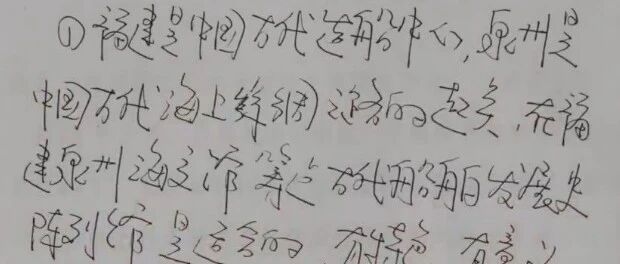 ①福建是中国古代造船中心,泉州是
中国古代海上丝绸之路的起点,在福
建泉州海交馆筹建古代船舶发展史
陈列馆是适合的,有特色,有意义